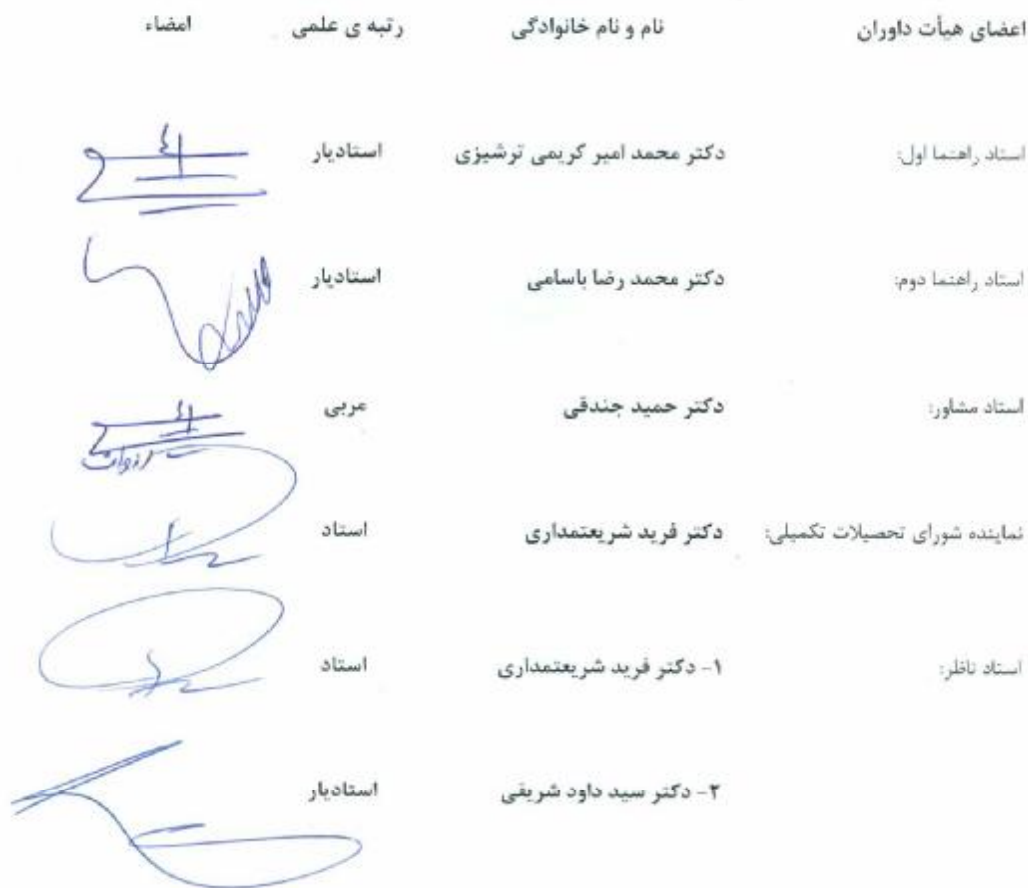 اعضای هیأت داوران نام و نام خانوادگی رتبه ی علمی امضاء
استاد راهنما اول: دکتر محمد امیر کریمی ترشیزی استادیار
استاد راهنما دوم: دکتر محمد رضا باسامی استادیار
استاد مشاور: دکتر حمید جندقی مربی
نماینده شورای تحصیلات تکمیلی: دکتر فرید شریعتمداری استاد
استاد ناظر: ۱- دکتر فرید شریعتمداری استاد
۲- دکتر سید داود شریفی استادیار